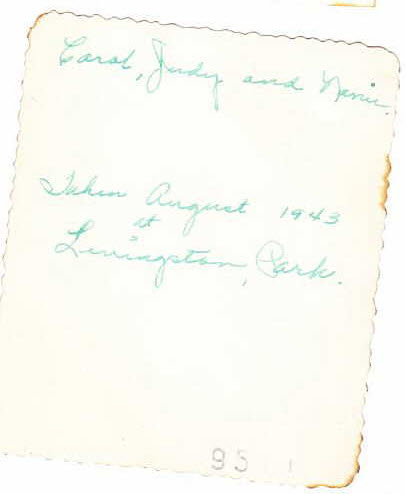 Carol, Judy and Nanie.
Taken August 1943
at
Livingston, Park.
95